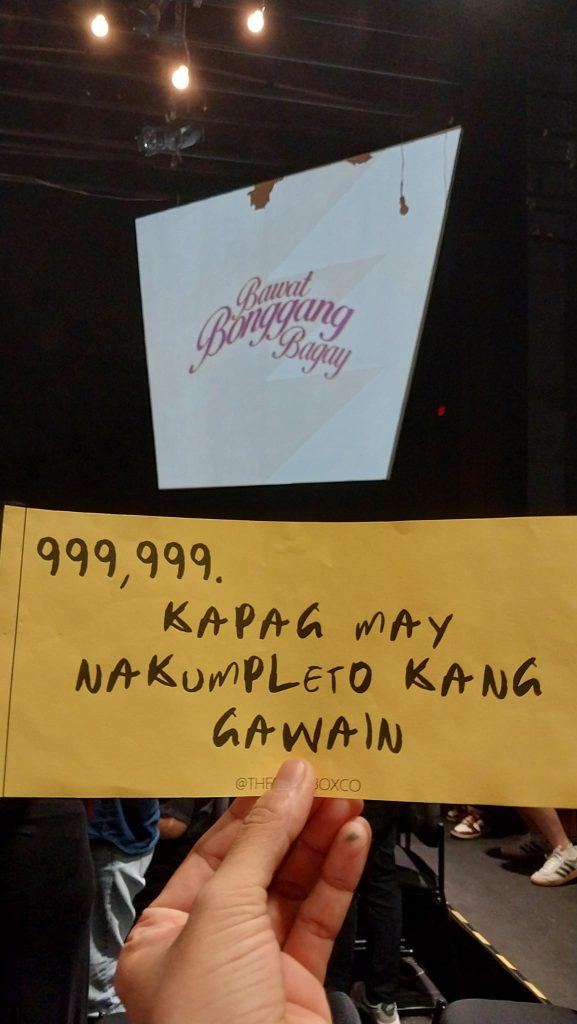 Bawat
Bonggang
Bagay
999,999.
KAPAG MAY
NAKUMPLETO KANG
GAWAIN